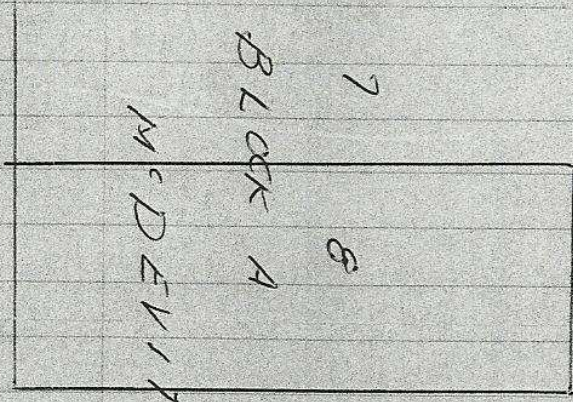 7 8
BLOCK A
McDEVIT